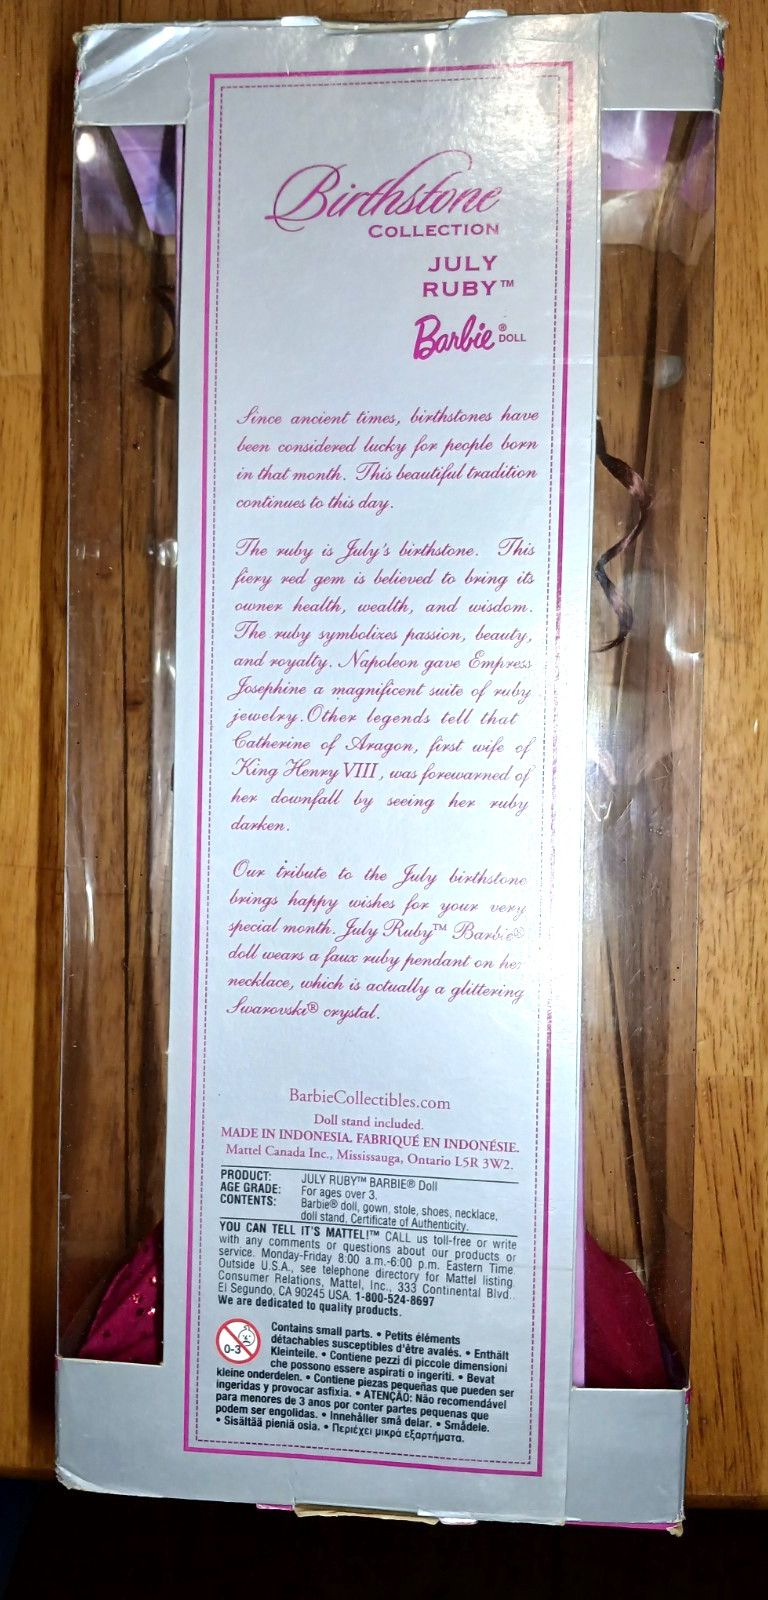 Birthstone
COLLECTION
JULY
RUBY™
Barbie® DOLL
Since ancient times, birthstones have
been considered lucky for people born
in that month. This beautiful tradition
continues to this day.
The ruby is July's birthstone. This
fiery red gem is believed to bring its
owner health, wealth, and wisdom.
The ruby symbolizes passion, beauty,
and royalty. Napoleon gave Empress
Josephine a magnificent suite of ruby
jewelry. Other legends tell that
Catherine of Aragon, first wife of
King Henry VIII, was forewarned of
her downfall by seeing her ruby
darken.
Our tribute to the July birthstone
brings happy wishes for your very
special month. July Ruby™ Barbie®
doll wears a faux ruby pendant on her
necklace, which is actually a glittering
Swarovski® crystal.
BarbieCollectibles.com
Doll stand included.
MADE IN INDONESIA. FABRIQUÉ EN INDONÉSIE.
Mattel Canada Inc., Mississauga, Ontario L5R 3W2.
PRODUCT: JULY RUBY™ BARBIE® Doll
AGE GRADE: For ages over 3.
CONTENTS: Barbie® doll, gown, stole, shoes, necklace,
doll stand, Certificate of Authenticity.
YOU CAN TELL IT'S MATTEL!™ CALL us toll-free or write
with any comments or questions about our products or
service. Monday-Friday 8:00 a.m.-6:00 p.m. Eastern Time.
Outside U.S.A., see telephone directory for Mattel listing.
Consumer Relations, Mattel, Inc., 333 Continental Blvd.,
El Segundo, CA 90245 USA. 1-800-524-8697
We are dedicated to quality products.
0-3
Contains small parts. • Petits éléments
détachables susceptibles d'être avalés. • Enthält
Kleinteile. • Contiene pezzi di piccole dimensioni
che possono essere aspirati o ingeriti. • Bevat
kleine onderdelen. • Contiene piezas pequeñas que pueden ser
ingeridas y provocar asfixia. • ATENÇÃO: Não recomendável
para menores de 3 anos por conter partes pequenas que
podem ser engolidas. • Innehåller små delar. • Smådele.
• Sisältää pieniä osia. • Περιέχει μικρά εξαρτήματα.